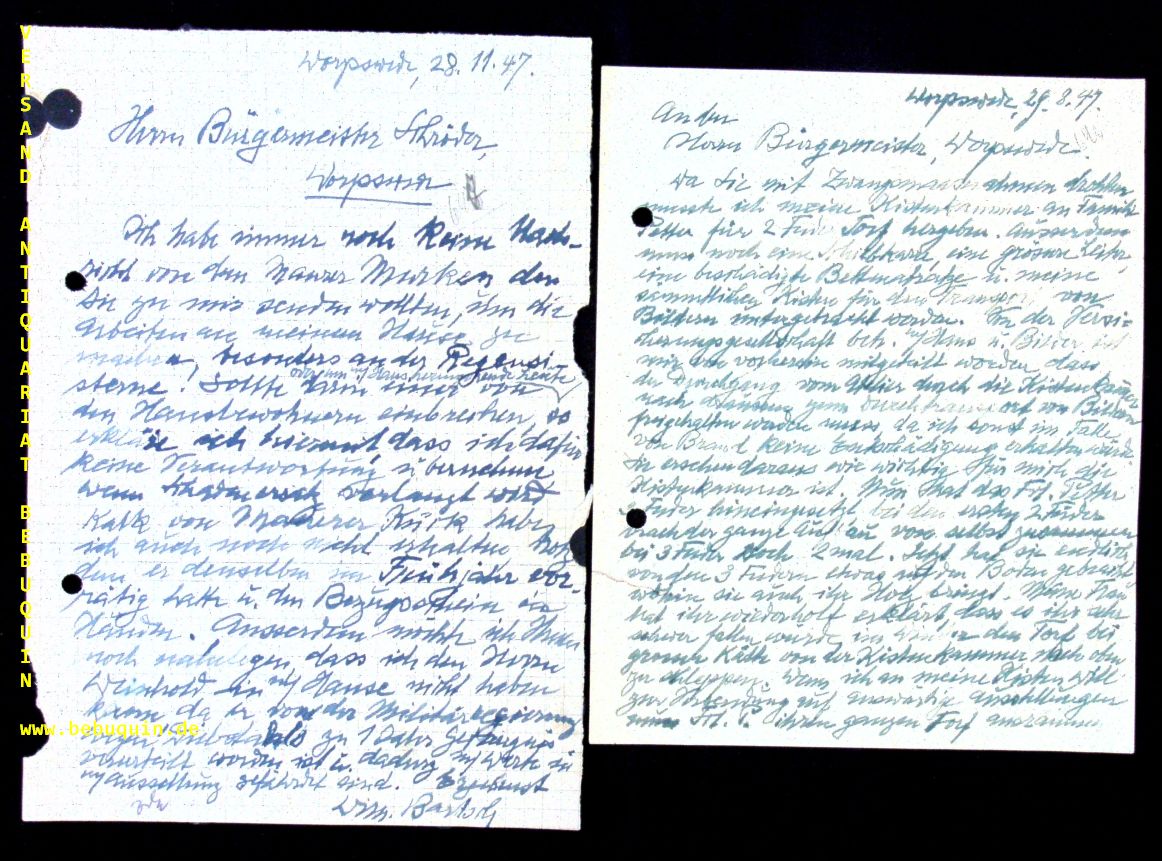 VERSAND ANTIQUARIAT BEBUQUIN
www.bebuquin.de
Worpswede, 28.11.47.
Herrn Bürgermeister Schröder,
Worpswede
Ich habe immer noch keine Nach-
richt von dem Maurer Murken den
Sie zu mir senden wollten, um die
Arbeiten an meinem Hause zu
machen, besonders an der Regenzi-
sterne! Sollte darin einer von
den Hausbewohnern einbrechen, so
erkläre ich hiermit dass ich dafür
keine Verantwortung übernehme
wenn Schadenersatz verlangt wird
Kalk von Maurer Kück habe
ich auch noch nicht erhalten trotz
dem er denselben im Frühjahr vor-
rätig hatte u. den Bezugsschein in
Händen. Ausserdem möchte ich Ihnen
noch nahelegen, dass ich den Herrn
Weinhold in m/ Hause nicht haben
kann da er von der Militärregierung
wegen Diebstahls zu 1 Jahr Gefängnis
verurteilt worden ist u. dadurch m/ Werke in
m/ Ausstellung gefährdet sind. Ergebenst
Wilh. Bartsch
Worpswede, 29.8.47.
An den
Herrn Bürgermeister, Worpswede.
Da Sie mit Zwangsmassnahmen drohten
musste ich meine Kistenkammer an Familie
für 2 Fuder Torf hergeben. Ausserdem
muss noch eine Schiebkarre eine grosse Leiter,
eine beschädigte Bettmatratze u. meine
sämmtlichen Kisten für den Transport von
Bildern untergebracht werden. Von der Versi-
cherungsgesellschaft betr. m/Haus u. Bilder ist
mir von vorherein mitgeteilt worden, dass
der Durchgang vom Atelier durch die Kistenkammer
nach draussen zum von Bildern
freigehalten werden muss, da ich sonst im Falle
von Brand keine Entschädigung erhalten würde.
Sie ersehen daraus wie wichtig für mich die
Kistenkammer ist. Nun hat das Frl.
Fuder hineingesetzt bei den ersten 2 Fuder
brach der ganze von selbst zusammen
bei 3 Fuder noch 2 mal. Jetzt hat sie endlich
von den 3 Fudern etwas auf den Boden gebracht,
wohin sie auch ihr Holz bringt. Meine Frau
hat ihr wiederholt erklärt, dass es ihr sehr
schwer fallen würde, im Winter den Torf bei
grosser Kälte von der Kistenkammer nach oben
zu schleppen. Wenn ich an meine Kisten will
zur Versendung auf auswärtige Ausstellungen
muss Frl. ihren ganzen Torf ausräumen